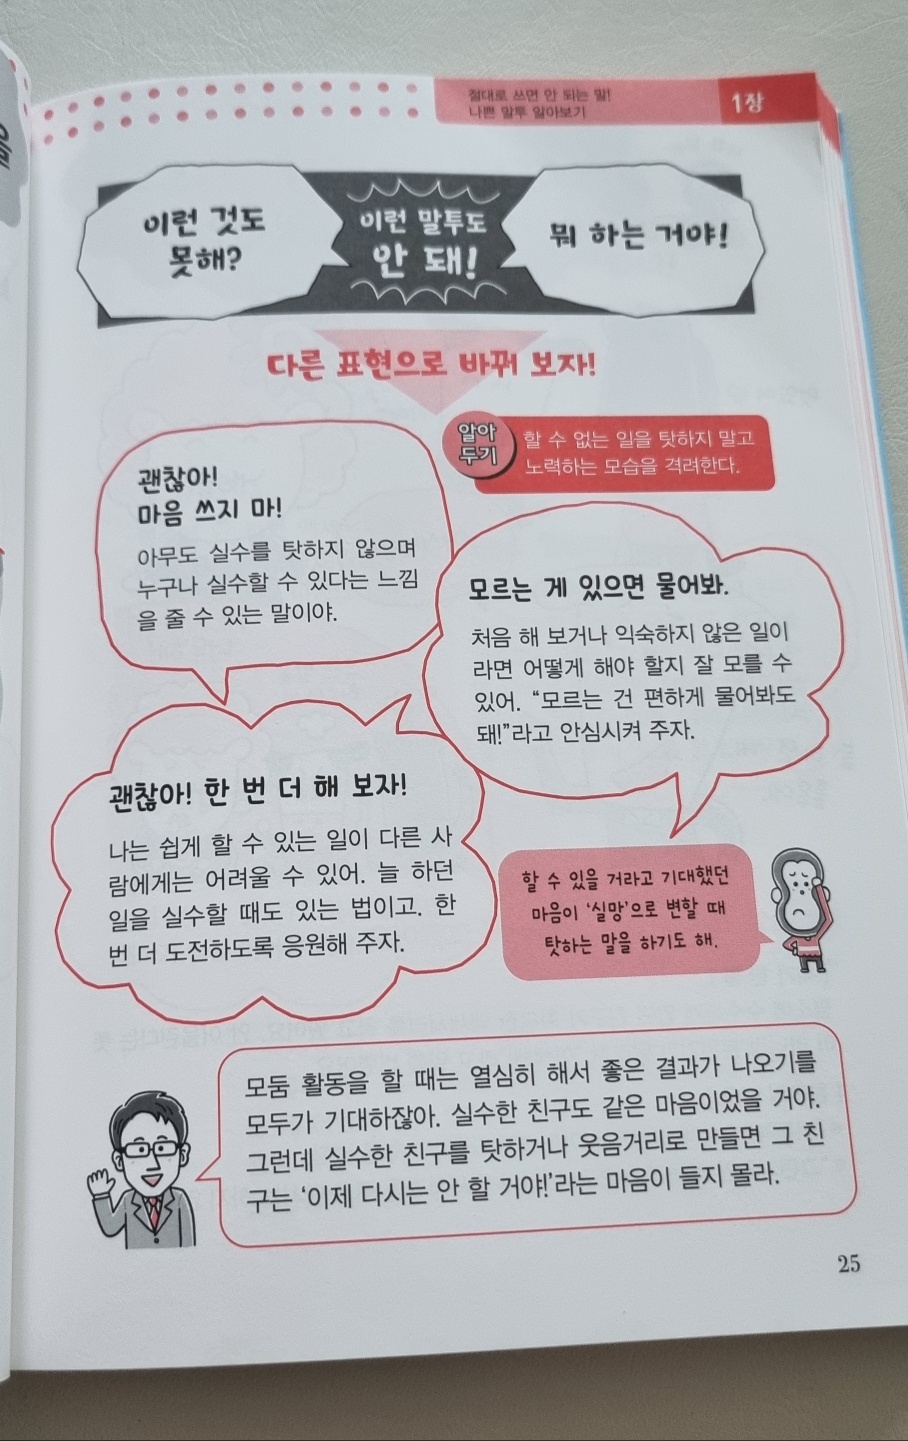 절대로 쓰면 안 되는 말!
나쁜 말투 알아보기
1장
이런 것도
못해?
이런 말투도
안 돼!
뭐 하는 거야!
다른 표현으로 바꿔 보자!
알아
두기
할 수 없는 일을 탓하지 말고
노력하는 모습을 격려한다.
괜찮아!
마음 쓰지 마!
아무도 실수를 탓하지 않으며
누구나 실수할 수 있다는 느낌
을 줄 수 있는 말이야.
모르는 게 있으면 물어봐.
처음 해 보거나 익숙하지 않은 일이
라면 어떻게 해야 할지 잘 모를 수
있어. “모르는 건 편하게 물어봐도
돼!”라고 안심시켜 주자.
괜찮아! 한 번 더 해 보자!
나는 쉽게 할 수 있는 일이 다른 사
람에게는 어려울 수 있어. 늘 하던
일을 실수할 때도 있는 법이고. 한
번 더 도전하도록 응원해 주자.
할 수 있을 거라고 기대했던
마음이 ‘실망’으로 변할 때
탓하는 말을 하기도 해.
모둠 활동을 할 때는 열심히 해서 좋은 결과가 나오기를
모두가 기대하잖아. 실수한 친구도 같은 마음이었을 거야.
그런데 실수한 친구를 탓하거나 웃음거리로 만들면 그 친
구는 ‘이제 다시는 안 할 거야!’라는 마음이 들지 몰라.
25